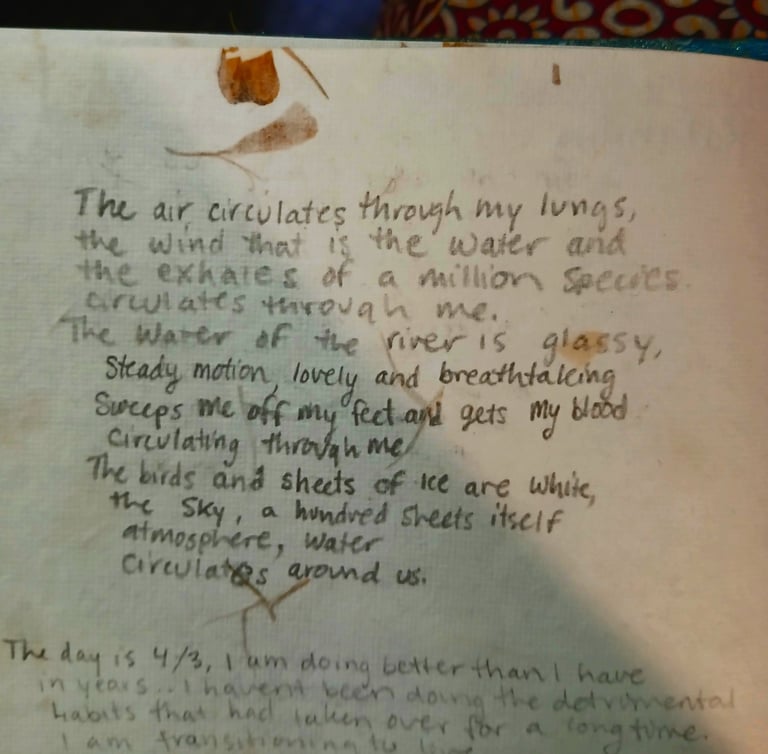 The air circulates through my lungs,
the wind that is the water and
the exhales of a million species
circulates through me.
The water of the river is glassy,
Steady motion, lovely and breathtaking
Sweeps me off my feet and gets my blood
Circulating through me
The birds and sheets of ice are white,
the sky, a hundred sheets itself
atmosphere, water
Circulates around us.
The day is 4/3, I am doing better than I have
in years.. I havent been doing the detrimental
habits that had taken over for a long time.
I am transitioning to